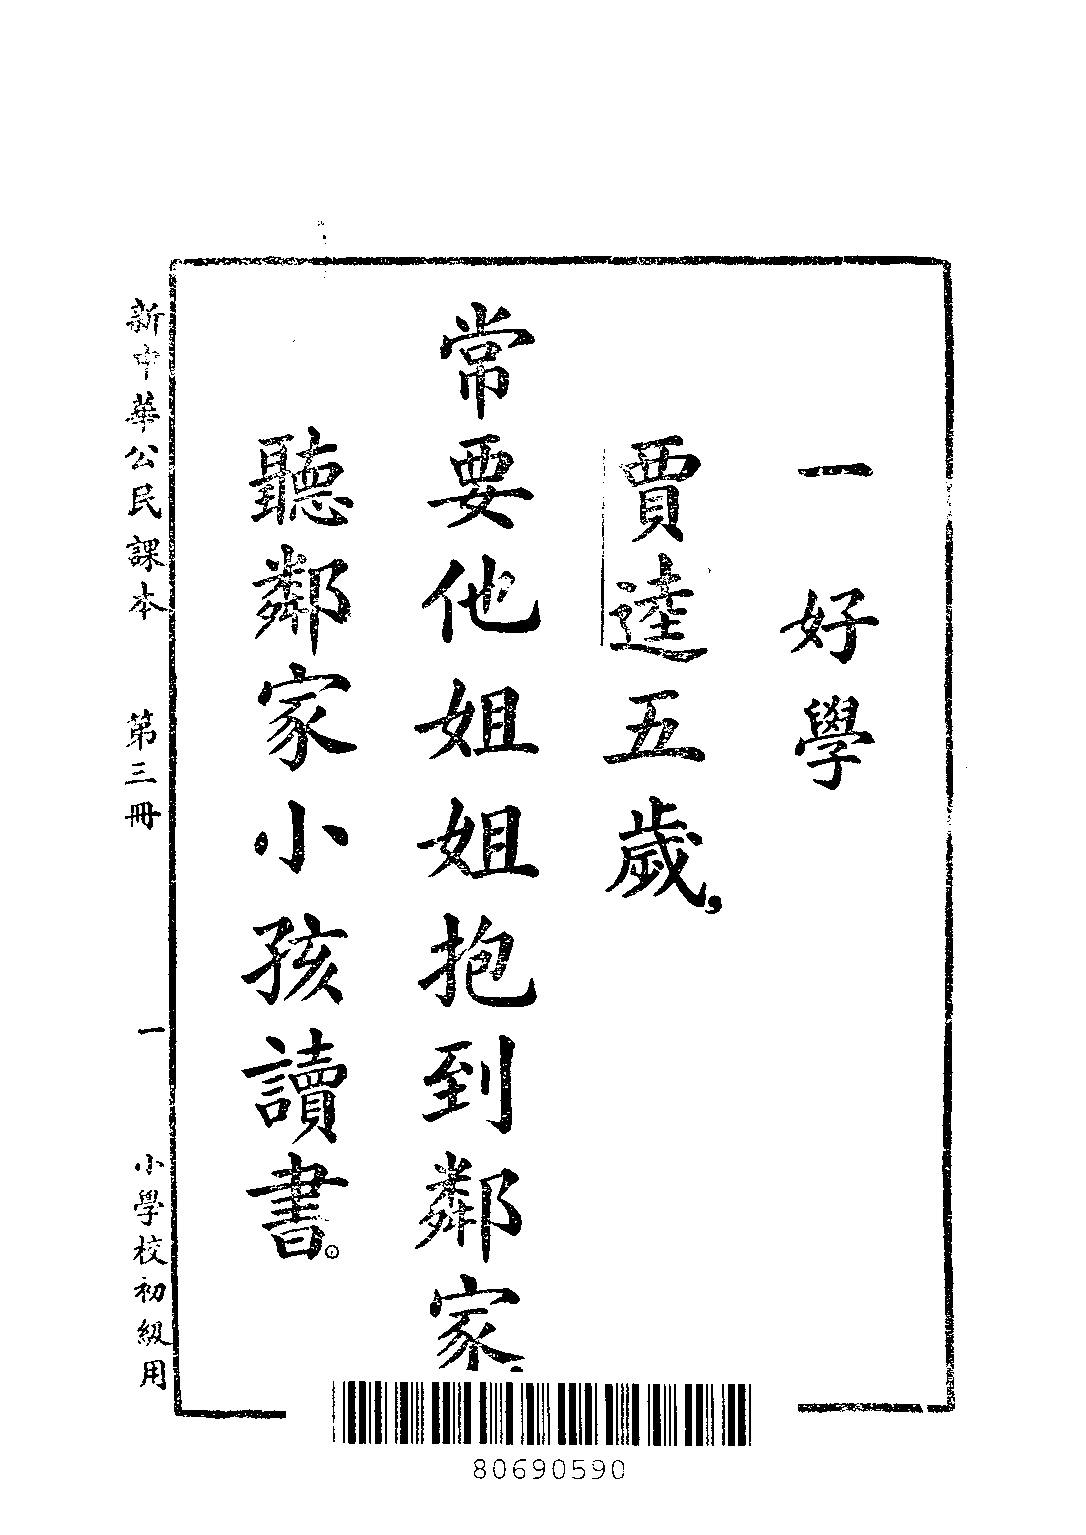 一 好學
賈逵五歲，
常要他姐姐抱到鄰家，
聽鄰家小孩讀書。
新中華公民課本 第三冊 一 小學校初級用
80690590